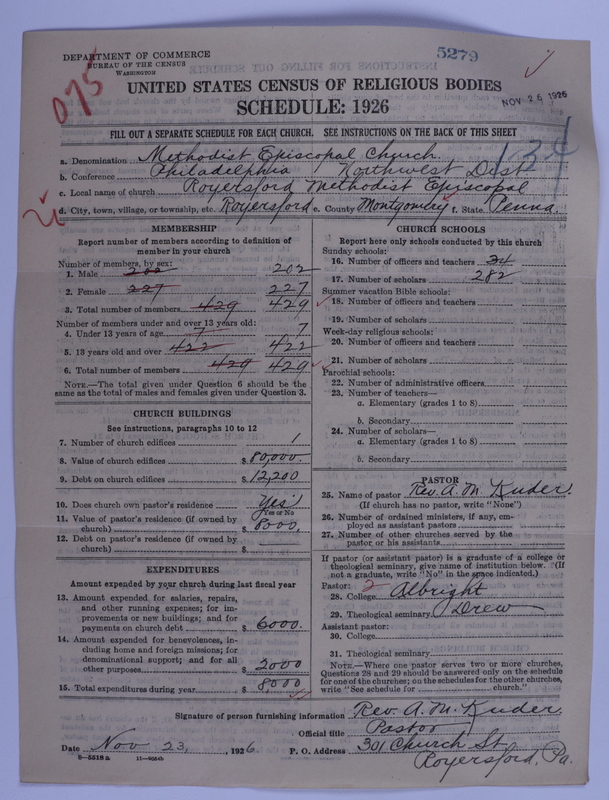 DEPARTMENT OF COMMERCE
BUREAU OF THE CENSUS
WASHINGTON
5279
075
UNITED STATES CENSUS OF RELIGIOUS BODIES
SCHEDULE: 1926
NOV 26 1926
FILL OUT A SEPARATE SCHEDULE FOR EACH CHURCH. SEE INSTRUCTIONS ON THE BACK OF THIS SHEET
134
a. Denomination Methodist Episcopal Church
b. Conference Philadelphia Northwest Dist
c. Local name of church Royersford Methodist Episcopal
d. City, town, village, or township, etc. Royersford e. County Montgomery f. State Penna.
MEMBERSHIP
Report number of members according to definition of
member in your church
Number of members, by sex:
1. Male 202 202
2. Female 227 227
3. Total number of members 429 429
Number of members under and over 13 years old:
4. Under 13 years of age 7 7
5. 13 years old and over 422 422
6. Total number of members 429 429
NOTE.—The total given under Question 6 should be the
same as the total of males and females given under Question 3.
CHURCH BUILDINGS
See instructions, paragraphs 10 to 12
7. Number of church edifices 1
8. Value of church edifices $ 80,000.
9. Debt on church edifices $ 12,200
10. Does church own pastor's residence Yes
Yes or No
11. Value of pastor's residence (if owned by
church) $ 8000.
12. Debt on pastor's residence (if owned by
church) $
EXPENDITURES
Amount expended by your church during last fiscal year
13. Amount expended for salaries, repairs,
and other running expenses; for im-
provements or new buildings; and for
payments on church debt $ 6000.
14. Amount expended for benevolences, in-
cluding home and foreign missions; for
denominational support; and for all
other purposes $ 2000
15. Total expenditures during year $ 8000
CHURCH SCHOOLS
Report here only schools conducted by this church
Sunday schools:
16. Number of officers and teachers 34
17. Number of scholars 282
Summer vacation Bible schools:
18. Number of officers and teachers
19. Number of scholars
Week-day religious schools:
20. Number of officers and teachers
21. Number of scholars
Parochial schools:
22. Number of administrative officers
23. Number of teachers—
a. Elementary (grades 1 to 8)
b. Secondary
24. Number of scholars—
a. Elementary (grades 1 to 8)
b. Secondary
PASTOR
25. Name of pastor Rev. A. M. Kuder.
(If church has no pastor, write "None")
26. Number of ordained ministers, if any, em-
ployed as assistant pastors
27. Number of other churches served by the
pastor or his assistants
If pastor (or assistant pastor) is a graduate of a college or
theological seminary, give name of institution below. (If
not a graduate, write "No" in the space indicated.)
Pastor: 2
28. College Albright
29. Theological seminary Drew
Assistant pastor:
30. College
31. Theological seminary
NOTE.—Where one pastor serves two or more churches,
Questions 28 and 29 should be answered only on the schedule
for one of the churches; on the schedules for the other churches,
write "See schedule for church."
Signature of person furnishing information Rev. A. M. Kuder.
Official title Pastor
Date Nov 23, , 1926 P. O. Address 301 Church St
Royersford, Pa.
8—5518a 11—9684b